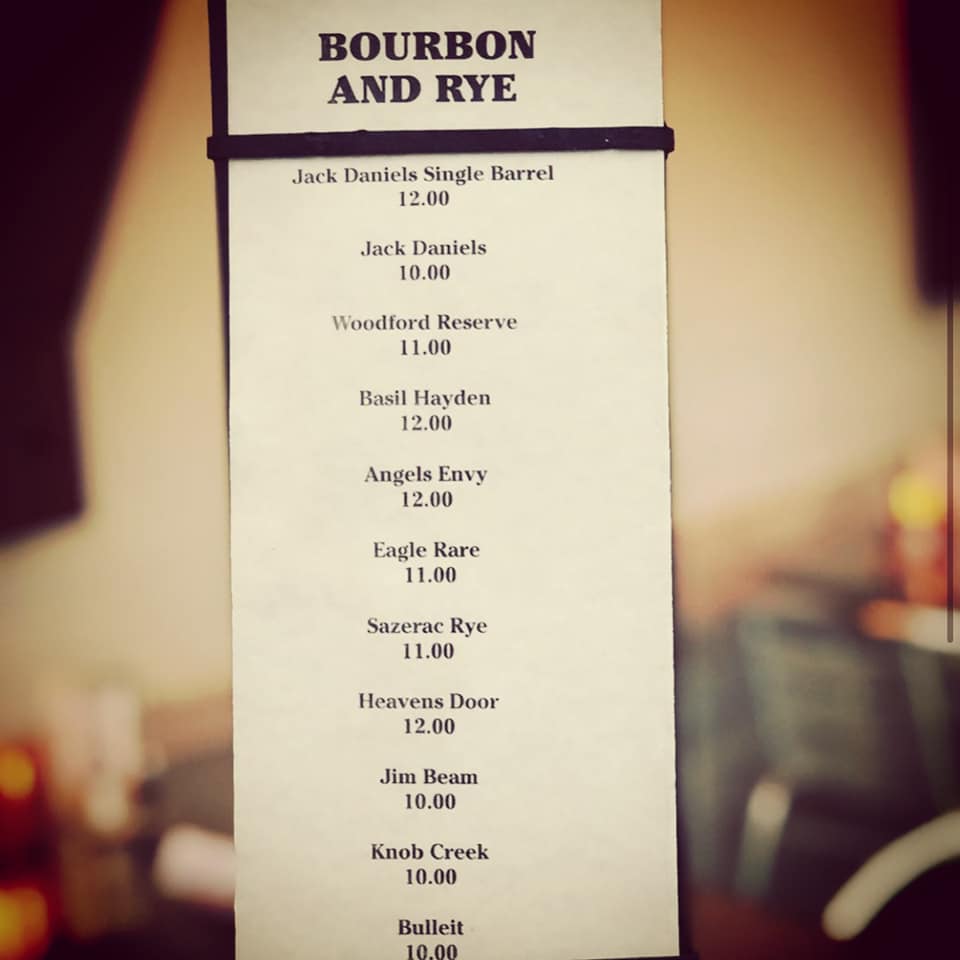 BOURBON
AND RYE
Jack Daniels Single Barrel
12.00
Jack Daniels
10.00
Woodford Reserve
11.00
Basil Hayden
12.00
Angels Envy
12.00
Eagle Rare
11.00
Sazerac Rye
11.00
Heavens Door
12.00
Jim Beam
10.00
Knob Creek
10.00
Bulleit
10.00